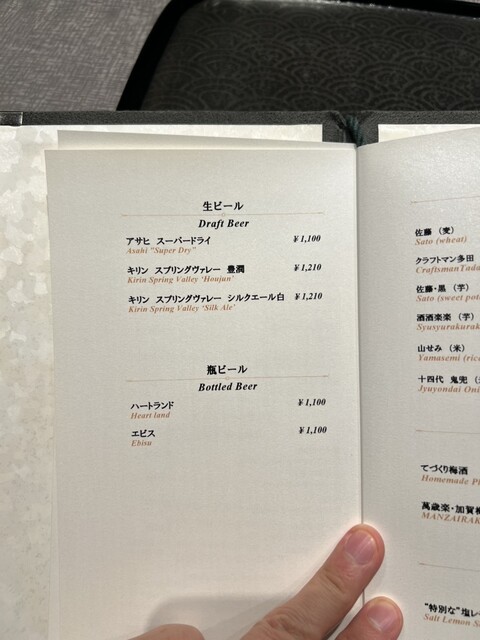 生ビール
Draft Beer
アサヒ スーパードライ ¥1,100
Asahi "Super Dry"
キリン スプリングヴァレー 豊潤 ¥1,210
Kirin Spring Valley 'Houjun'
キリン スプリングヴァレー シルクエール白 ¥1,210
Kirin Spring Valley 'Silk Ale'
瓶ビール
Bottled Beer
ハートランド ¥1,100
Heart land
エビス ¥1,100
Ebisu
佐藤 (麦)
Sato (wheat)
クラフトマン多田
CraftsmanTada
佐藤・黒 (芋)
Sato (sweet
酒酒楽楽 (芋)
Syusyurakurak
山せみ (米)
Yamasemi
十四代 鬼兜
Jyuyondai Oni
てづくり梅酒
Homemade
萬歳楽・加賀
MANZAIRAK
"特別な"塩レ
Salt Lemon